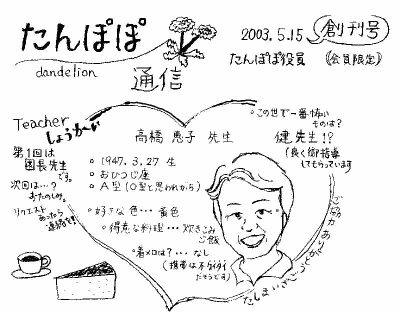 たんぽぽ
dandelion
通信
2003.5.15
創刊号
たんぽぽ役員 《会員限定》
Teacher
しょうかーい
第1回は
園長先生
です。
次回は…?
おたのしみ。
リクエスト
あったら
連絡を!
高橋 恵子 先生
・1947.3.27 生
・おひつじ座
・A型(O型と思われがち)
・好きな色… 黄色
・得意な料理… 炊きこみ
ご飯
・着メロは?… なし
(携帯は不ケイタイ
だそうです)
・この世で一番怖い
ものは?
健先生!?
(良く御指導
してもらっています